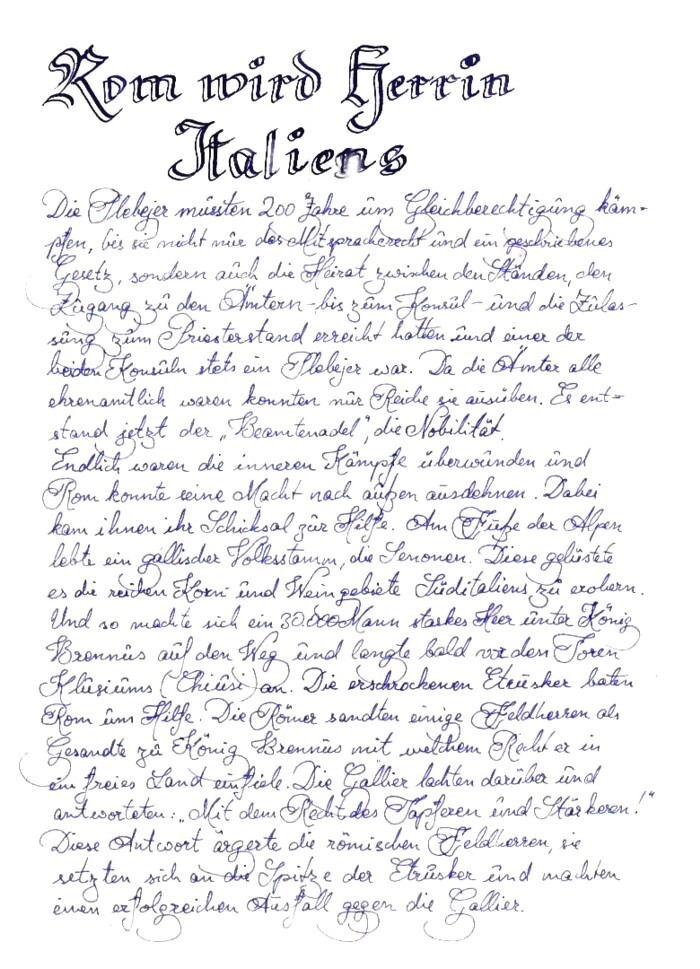 Rom wird Herrin
Italiens
Die Plebejer mussten 200 Jahre um Gleichberechtigung käm-
pfen, bis sie nicht nur das Mitspracherecht und ein geschriebenes
Gesetz, sondern auch die Heirat zwischen den Ständen, den
Zugang zu den Ämtern - bis zum Konsul - und die Zulas-
sung zum Priesterstand erreicht hatten und einer der
beiden Konsuln stets ein Plebejer war. Da die Ämter alle
ehrenamtlich waren konnten nur Reiche sie ausüben. Es ent-
stand jetzt der „Beamtenadel", die Nobilität.
Endlich waren die inneren Kämpfe überwunden und
Rom konnte seine Macht nach außen ausdehnen. Dabei
kam ihnen ihr Schicksal zur Hilfe. Am Fuße der Alpen
lebte ein gallischer Volksstamm, die Senonen. Diese gelüstete
es die reichen Korn- und Weingebiete Süditaliens zu erobern.
Und so machte sich ein 30.000 Mann starkes Heer unter König
Brennus auf den Weg und langte bald vor den Toren
Klusiums (Chiusi) an. Die erschrockenen Etrusker baten
Rom um Hilfe. Die Römer sandten einige Feldherren als
Gesandte zu König Brennus mit welchem Recht er in
ein freies Land einfiele. Die Gallier lachten darüber und
antworteten: „Mit dem Recht des Tapferen und Stärkeren!"
Diese Antwort ärgerte die römischen Feldherren, sie
setzten sich an die Spitze der Etrusker und machten
einen erfolgreichen Ausfall gegen die Gallier.